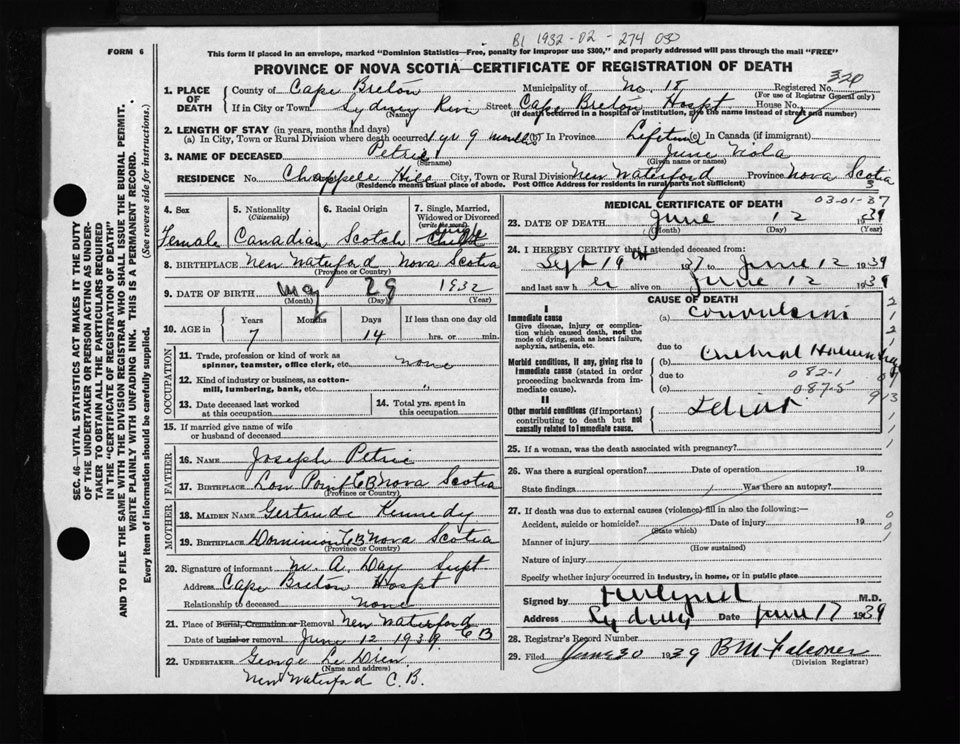 B1 1932-02-274 030
FORM 6
This form if placed in an envelope, marked "Dominion Statistics—Free, penalty for improper use $300," and properly addressed will pass through the mail "FREE"
PROVINCE OF NOVA SCOTIA—CERTIFICATE OF REGISTRATION OF DEATH
320
1. PLACE OF DEATH County of Cape Breton Municipality of No. 15 Registered No.
(For use of Registrar General only)
If in City or Town Sydney River Street Cape Breton Hospt House No.
(Name) (If death occurred in a hospital or institution, give the name instead of street and number)
2. LENGTH OF STAY (in years, months and days)
(a) In City, Town or Rural Division where death occurred 1 yr 9 months (b) In Province Lifetime (c) In Canada (if immigrant)
3. NAME OF DECEASED Petrie June Viola
(Surname) (Given name or names)
RESIDENCE No. Chappele Hill City, Town or Rural Division New Waterford Province Nova Scotia
(Residence means usual place of abode. Post Office Address for residents in rural parts not sufficient)
3
4. Sex Female
5. Nationality (Citizenship) Canadian
6. Racial Origin Scotch
7. Single, Married, Widowed or Divorced (write the word) Single Child
8. BIRTHPLACE New Waterford Nova Scotia
(Province or Country)
9. DATE OF BIRTH May 29 1932
(Month) (Day) (Year)
10. AGE in Years Months Days If less than one day old
7 14 hrs. or min.
OCCUPATION
11. Trade, profession or kind of work as spinner, teamster, office clerk, etc. none
12. Kind of industry or business, as cotton-mill, lumbering, bank, etc. "
13. Date deceased last worked at this occupation
14. Total yrs. spent in this occupation
15. If married give name of wife or husband of deceased
FATHER
16. NAME Joseph Petrie
17. BIRTHPLACE Low Point CB Nova Scotia
(Province or Country)
MOTHER
18. MAIDEN NAME Gertrude Kennedy
19. BIRTHPLACE Dominion CB Nova Scotia
(Province or Country)
20. Signature of informant M. A. Day Supt
Address Cape Breton Hospt
Relationship to deceased none
21. Place of Burial, Cremation or Removal New Waterford CB
Date of burial or removal June 12 1939
22. UNDERTAKER George Le Drew
(Name and address)
New Waterford C.B.
MEDICAL CERTIFICATE OF DEATH 03-01-37
23. DATE OF DEATH June 12 1939
(Month) (Day) (Year)
24. I HEREBY CERTIFY that I attended deceased from:
Sept 19th 1937 to June 12 1939
and last saw her alive on June 12 1939
CAUSE OF DEATH
I
Immediate cause (a) Convulsions
Give disease, injury or complication which caused death, not the mode of dying, such as heart failure, asphyxia, asthenia, etc.
due to
Morbid conditions, if any, giving rise to immediate cause (stated in order proceeding backwards from immediate cause). (b) Cerebral
due to 082-1
(c) 087-5
II
Other morbid conditions (if important) contributing to death but not causally related to Immediate cause. Idiot
25. If a woman, was the death associated with pregnancy?
26. Was there a surgical operation? Date of operation 19
State findings Was there an autopsy?
27. If death was due to external causes (violence) fill in also the following:—
Accident, suicide or homicide? Date of injury 19
(State which)
Manner of injury
(How sustained)
Nature of injury
Specify whether injury occurred in industry, in home, or in public place
Signed by M.D.
Address Sydney Date June 17 1939
28. Registrar's Record Number
29. Filed June 30 1939 B M Falconer
(Division Registrar)
SEC. 46—VITAL STATISTICS ACT MAKES IT THE DUTY
OF THE UNDERTAKER OR PERSON ACTING AS UNDER-
TAKER TO OBTAIN ALL THE PARTICULARS REQUIRED
IN THE "CERTIFICATE OF REGISTRATION OF DEATH"
AND TO FILE THE SAME WITH THE DIVISION REGISTRAR WHO SHALL ISSUE THE BURIAL PERMIT.
WRITE PLAINLY WITH UNFADING INK. THIS IS A PERMANENT RECORD.
Every item of information should be carefully supplied. (See reverse side for instructions.)